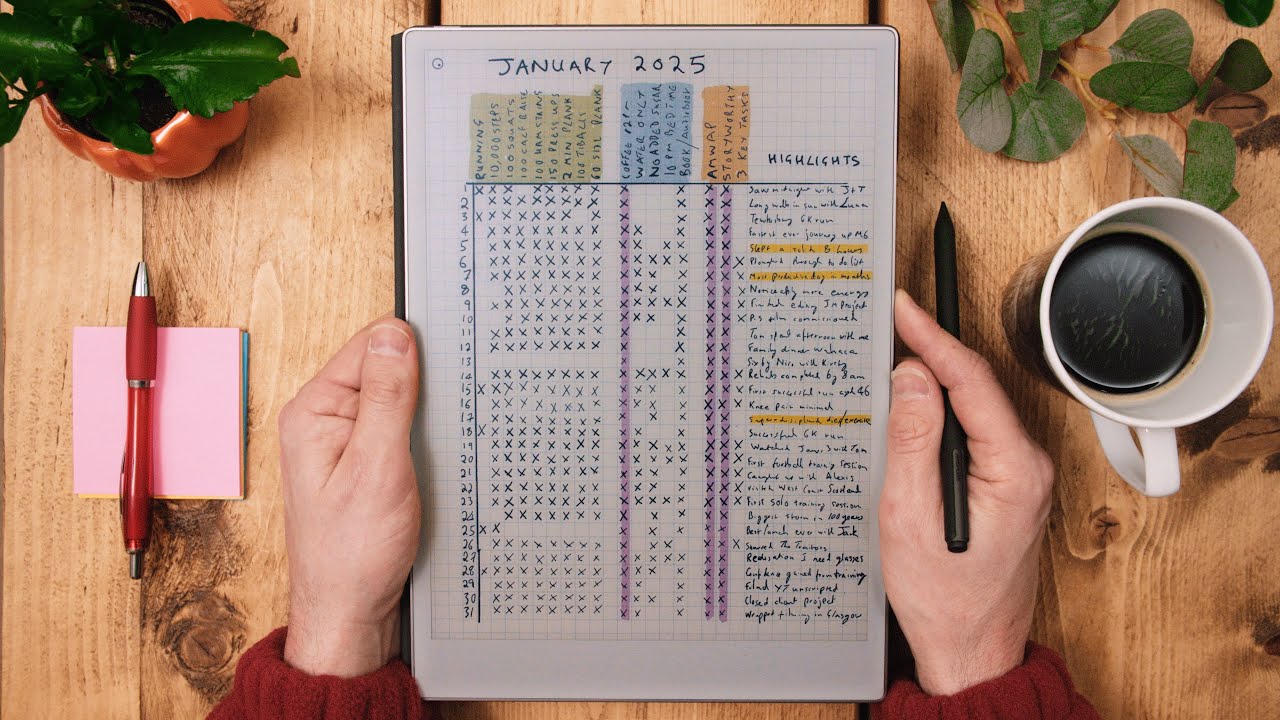 JANUARY 2025
RUNNING
10,000 STEPS
100 SQUATS
100 CALF RAISE
100 HAMSTRING
150 PRESS UPS
2 MIN PLANK
100 TIBALIS
60 SIDE PLANK
COFFEE
WATER ONLY
NO ADDED SUGAR
10 PM BEDTIME
BOOK/AUDIOBOOK
AM WAP
STORYWORTHY
3 KEY TASKS
HIGHLIGHTS
1 x x x x x x x x x x x x x Saw midnight with J+T
2 x x x x x x x x x x x x Long walk in sun with
3 x x x x x x x x x x x x 6K run
4 x x x x x x x x x x x x x Fastest ever journey up M6
5 Slept a solid 8 hours
6 Ploughed through to do list
7 Most productive day in months
8 Noticeably more energy
9 Finished editing JM project
10 film commissioned
11 Tom spent afternoon with me
12 Family dinner Wahaca
13 Nico with
14 completed by 8am
15 First successful run
16 Knee pain minimal
17
18 Successful 6K run
19 Watched Jaws 3 with Tom
20 First football training session
21 Caught up with Alexis
22 Visited West Coast Scotland
23 First solo training session
24 Biggest storm in 100 years
25 Best lunch ever with Jack
26 The Traitors
27 Realisation I need glasses
28 gained from training
29 Filmed YT unscripted
30 Closed client project
31 Wrapped filming in Glasgow